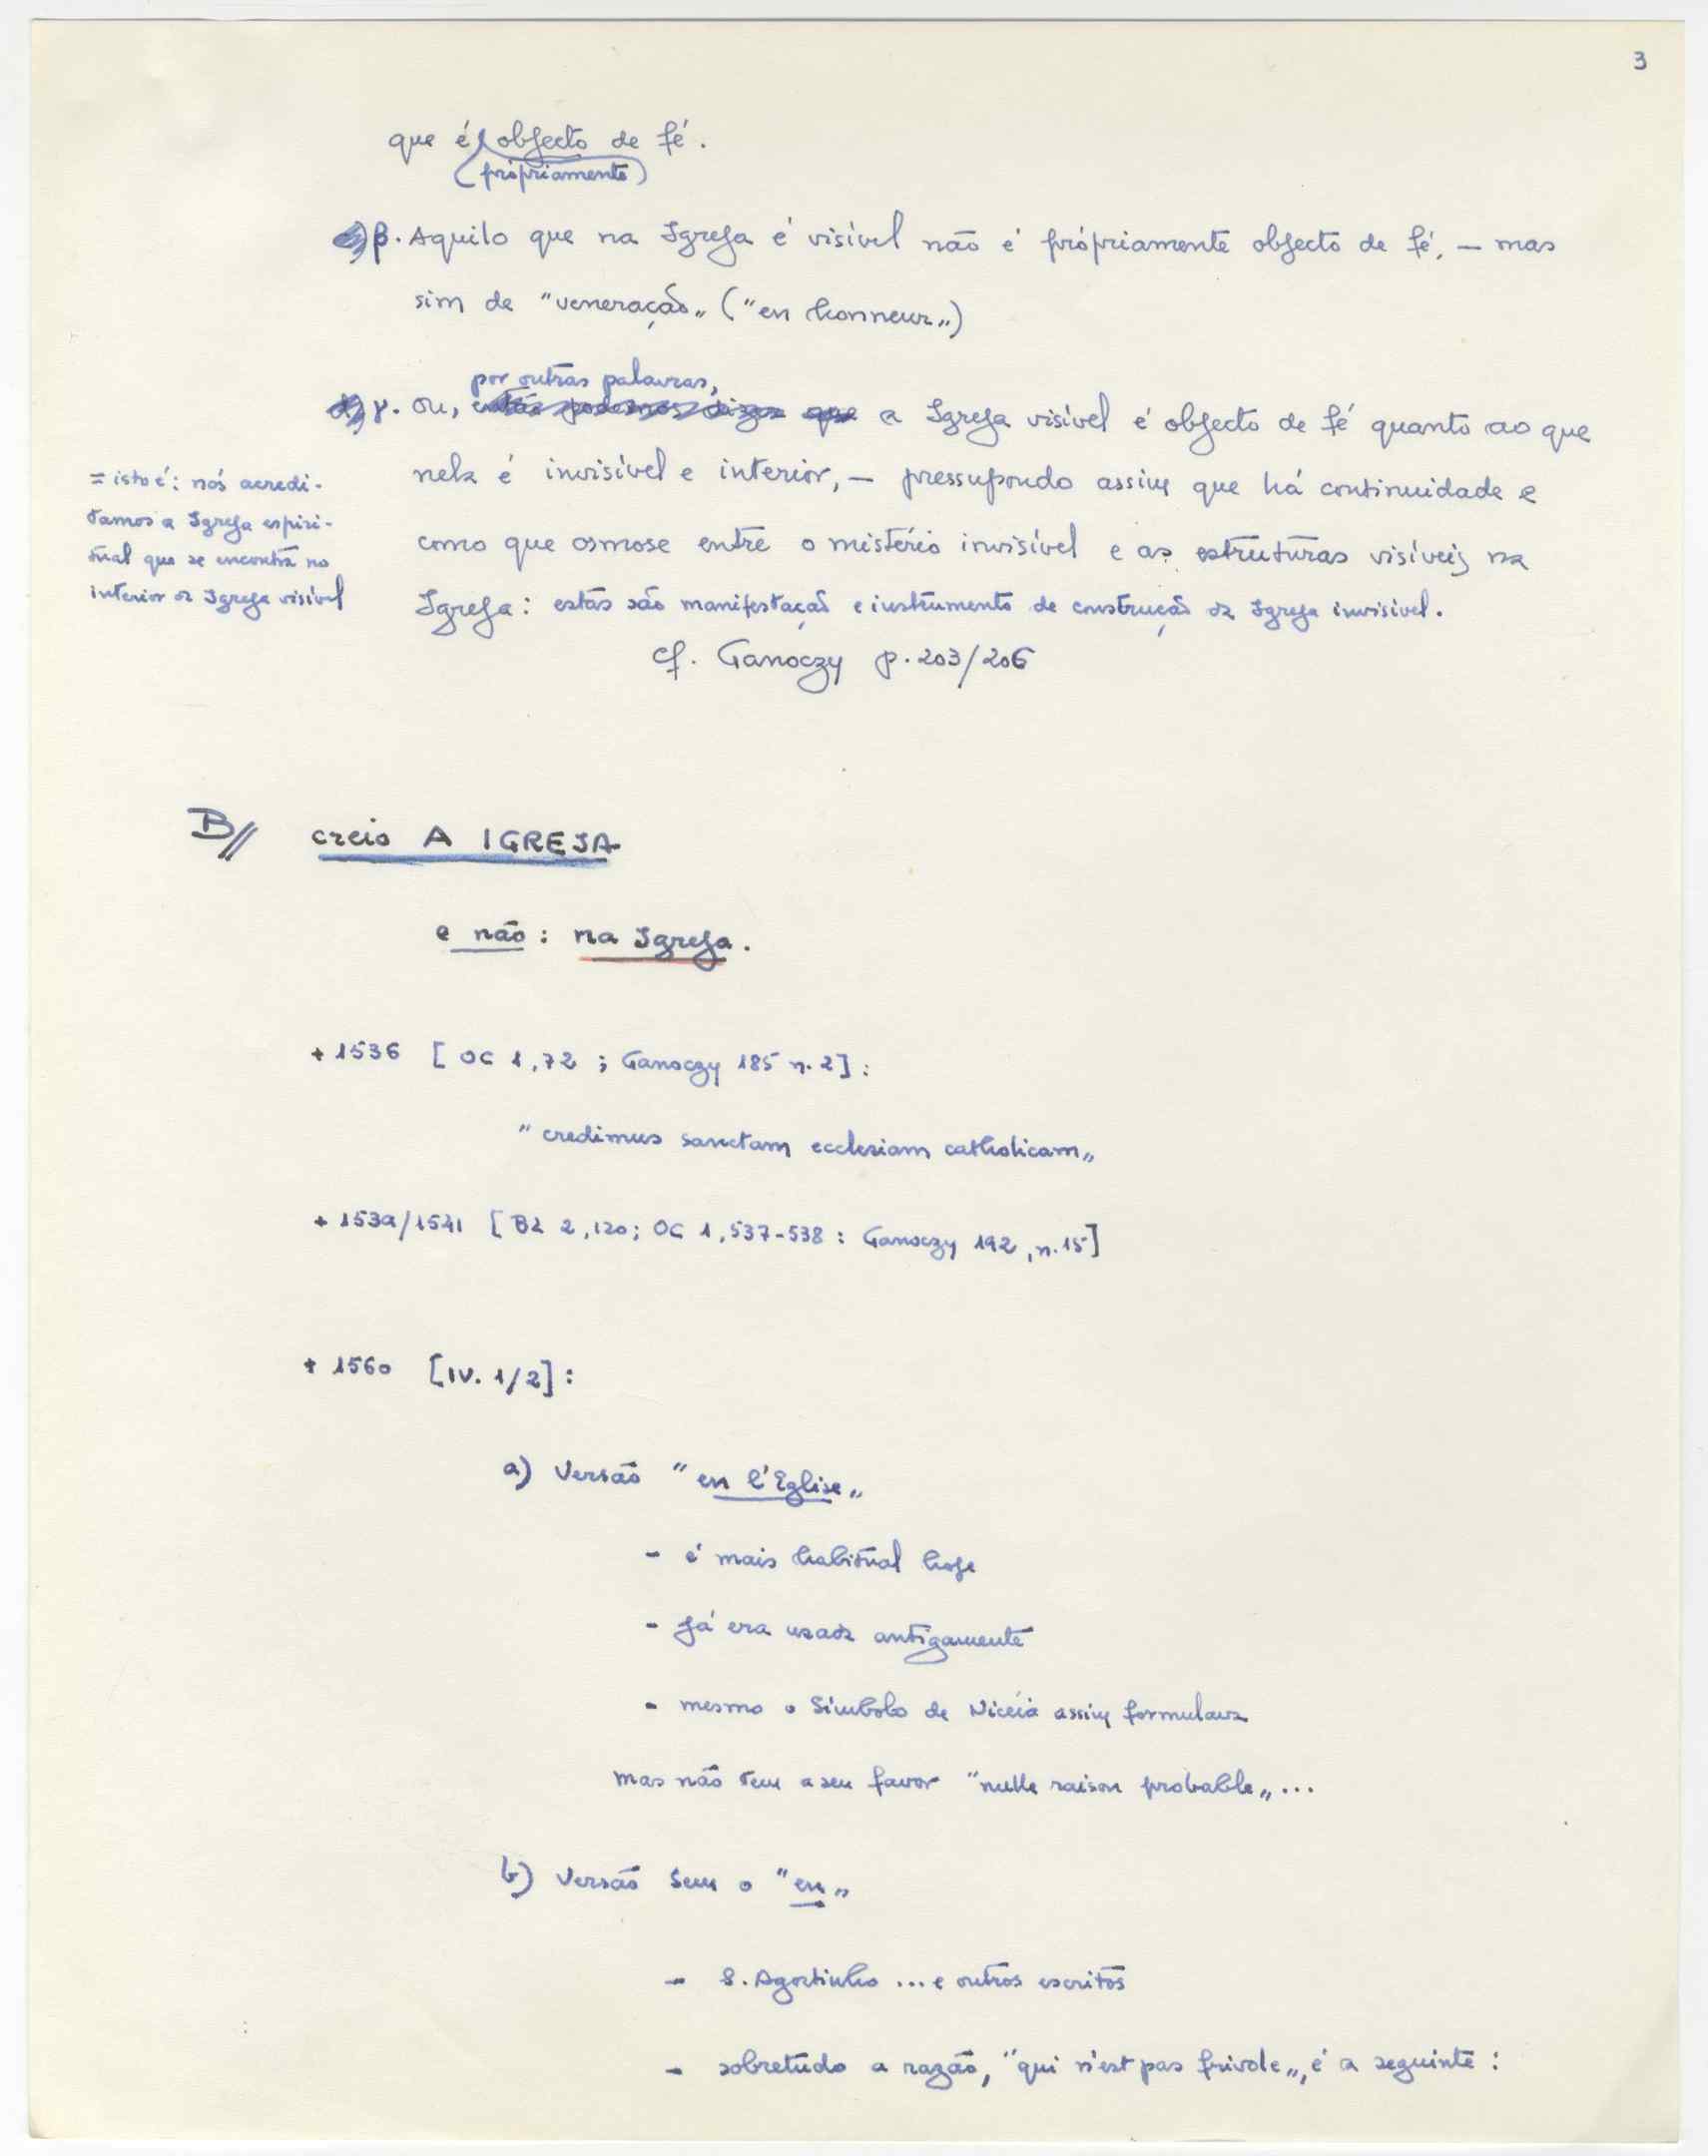 3
que é objecto de fé.
(pròpriamente)
β. Aquilo que na Igreja é visível não é pròpriamente objecto de fé, — mas
sim de "veneração„ ("en honneur„)
por outras palavras,
γ. ou, então podemos dizer que a Igreja visível é objecto de fé quanto ao que
nela é invisível e interior, — pressupondo assim que há continuidade e
como que osmose entre o mistério invisível e as estruturas visíveis na
Igreja: estas são manifestação e instrumento de construção da Igreja invisível.
= isto é: nós acredi-
tamos a Igreja espiri-
tual que se encontra no
interior da Igreja visível
cf. Ganoczy p. 203/206
B// creio A IGREJA
e não: na Igreja.
+ 1536 [OC 1,72 ; Ganoczy 185 n. 2]:
"credimus sanctam ecclesiam catholicam„
+ 1539/1541 [BL 2,120; OC 1,537-538 : Ganoczy 192, n. 15]
+ 1560 [IV. 1/2]:
a) Versão "en l'Eglise„
- é mais habitual hoje
- já era usada antigamente
- mesmo o Símbolo de Niceia assim formulava
mas não tem a seu favor "nulle raison probable„...
b) Versão sem o "en„
- S. Agostinho ... e outros escritos
- sobretudo a razão, "qui n'est pas frivole„, é a seguinte: